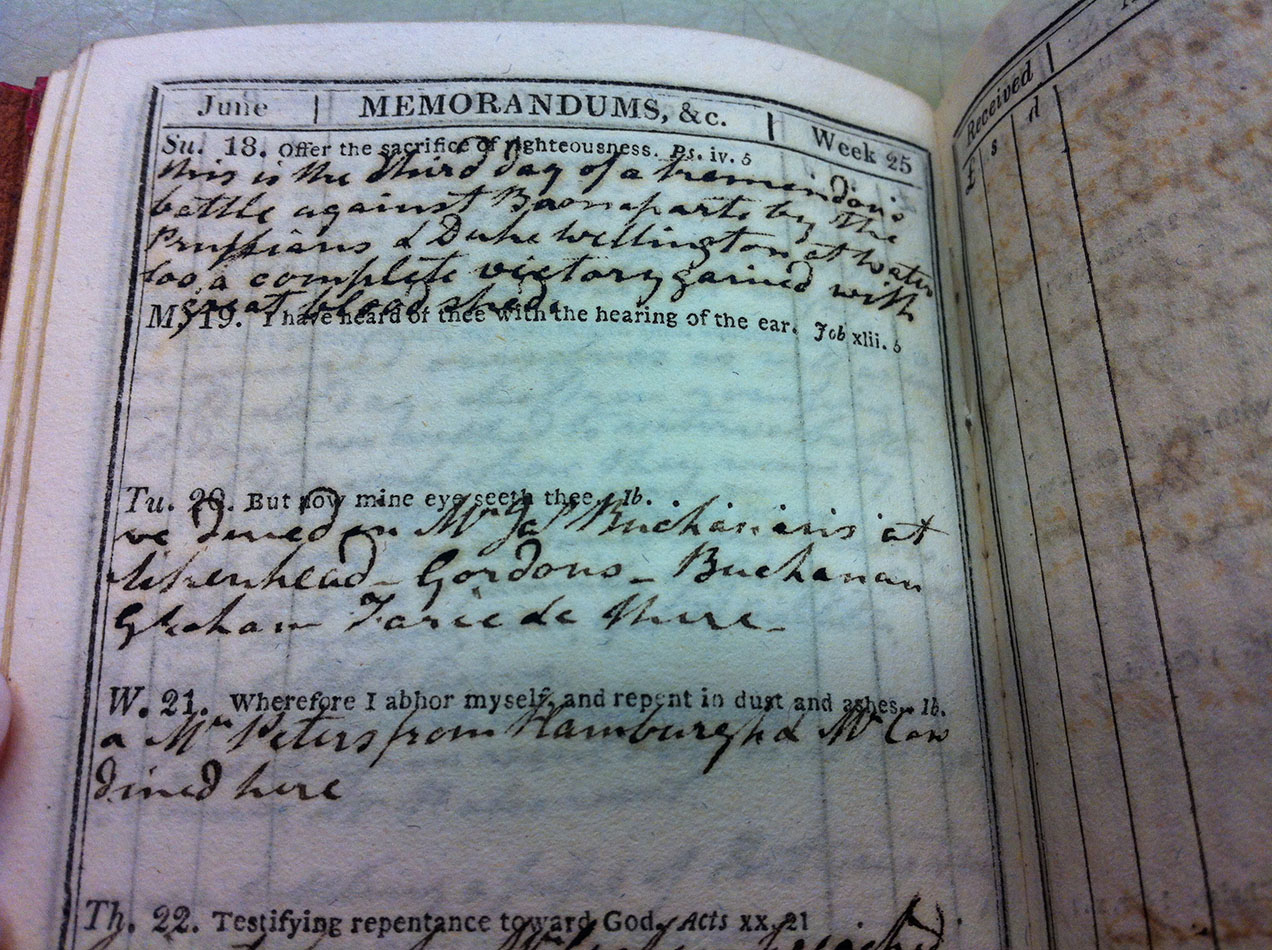 June | MEMORANDUMS, &c. | Week 25
Su. 18. Offer the sacrifice of righteousness. Ps. iv. 5
this is the third day of a tremendous
battle against Buonaparte by the
Prussians & Duke Wellington at Water
loo a complete victory gained with
great blood shed.
M. 19. I have heard of thee with the hearing of the ear. Job xlii. 5
Tu. 20. But now mine eye seeth thee. Ib.
we dined Mr Buchanans at
Aikenhead - Gordons - Buchanan
Graham there -
W. 21. Wherefore I abhor myself, and repent in dust and ashes. Ib.
a Mr Peters from Hamburgh & Mr
dined here
Th. 22. Testifying repentance toward God. Acts xx. 21
Received
£ s d